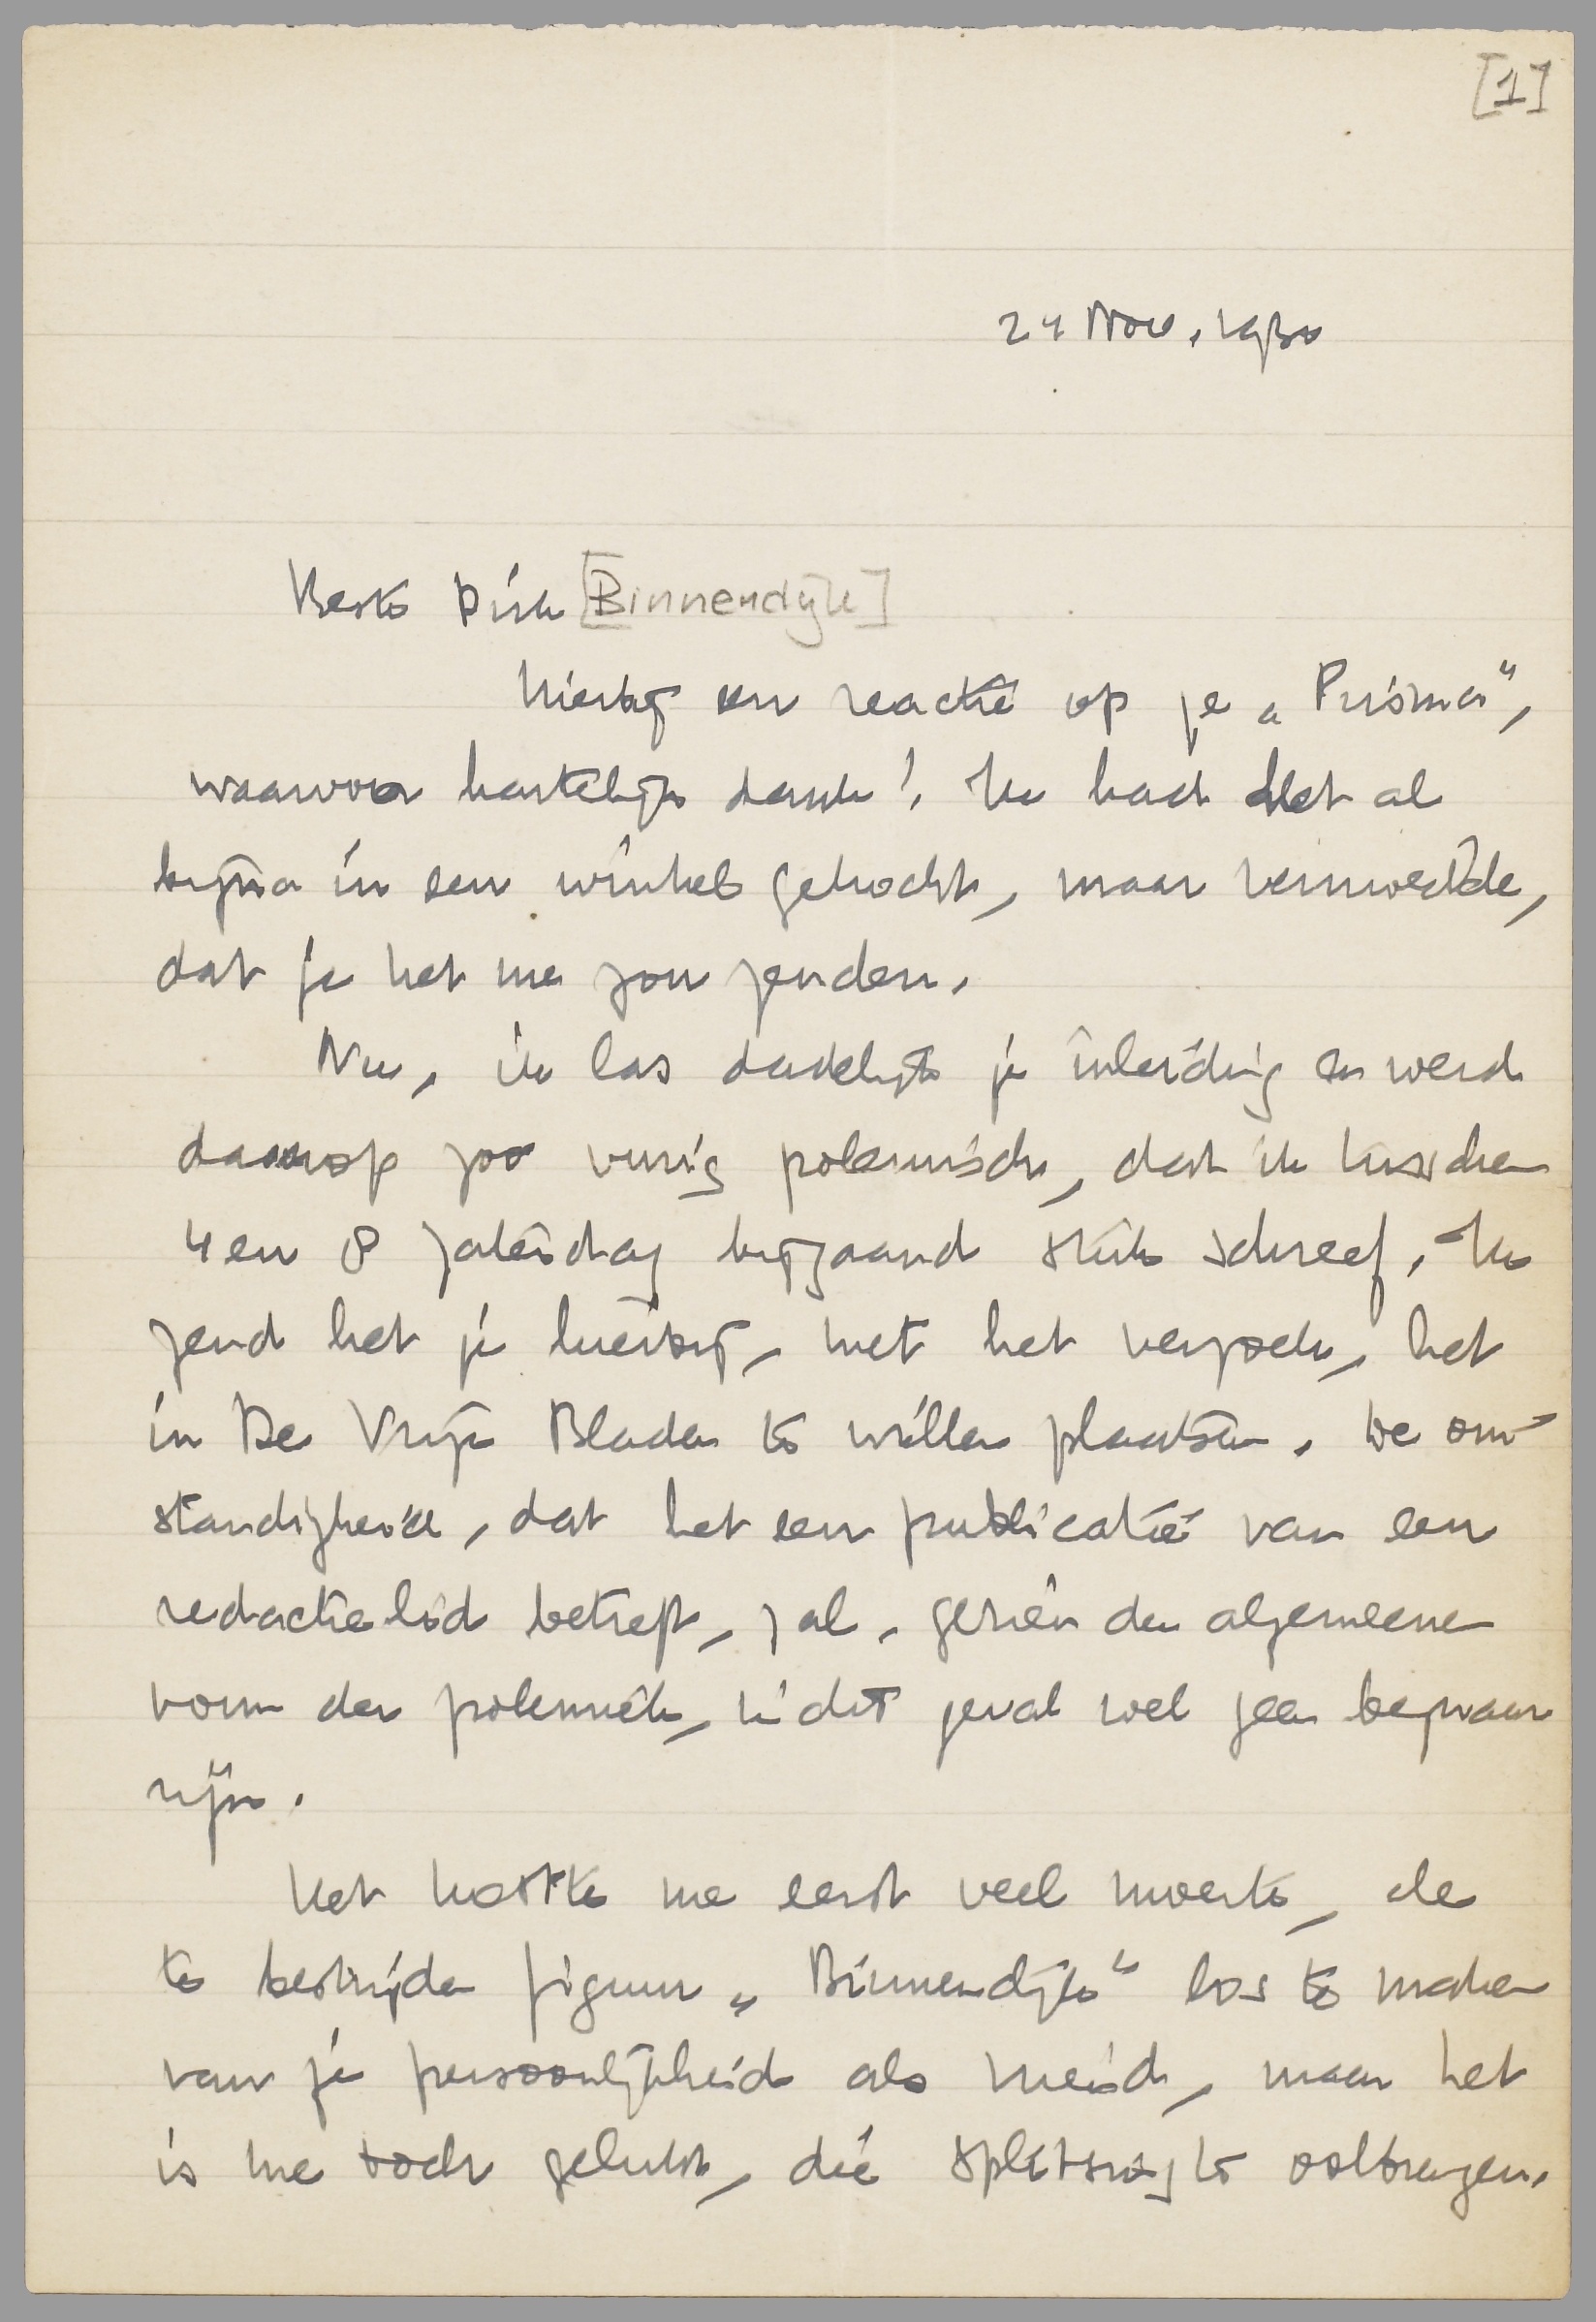 [1]
24 Nov. 1930
Beste Dirk [Binnendijk]
Hierbij een reactie op je „Prisma",
waarvoor hartelijk dank! Ik had het al
bijna in een winkel gekocht, maar vermoedde,
dat je het me zou zenden.
Nu, ik las dadelijk je inleiding en werd
daarop zoo vurig polemisch, dat ik tusschen
4 en 8 Zaterdag bijgaand stuk schreef. Ik
zend het je hierbij, met het verzoek, het
in De Vrije Bladen te willen plaatsen. De om-
standigheid, dat het een publicatie van een
redactielid betreft, zal, gezien den algemeenen
vorm der polemiek, in dit geval wel geen bezwaar
zijn.
Het kostte me eerst veel moeite, de
te bestrijden figuur „Binnendijk" los te maken
van je persoonlijkheid als vriend, maar het
is me toch gelukt, die splitsing te voltrekken.